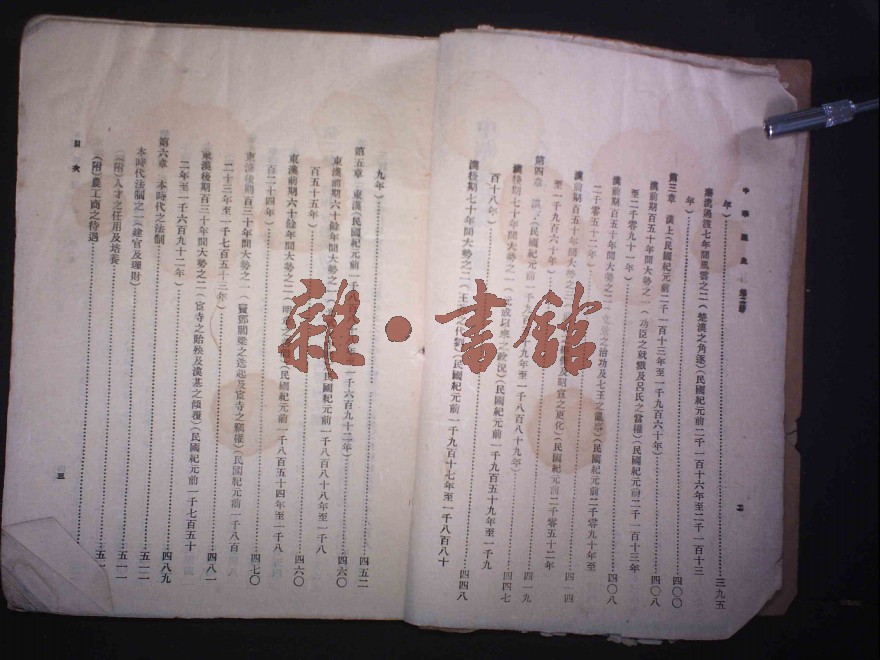 中華通史
二
年)
秦漢過渡七年間風雲之二(楚漢之角逐)(民國紀元前二千一百十六年至二千一百十三
年)……三九五
第三章 漢上(民國紀元前二千一百十三年至一千九百六十年)……四〇〇
漢前期百五十年間大勢之一(功臣之就戮及呂氏之當權)(民國紀元前二千一百十三年
至二千零九十一年)……四〇八
漢前期百五十年間大勢之二(之治功及七王之)(民國紀元前二千零九十年至
二千零五十二年)……四〇八
漢前期百五十年間大勢之三(及昭宣之更化)(民國紀元前二千零五十二年
至一千九百六十年)……四一四
第四章 漢下(民國紀元前一千九百年至一千八百八十九年)……四一九
漢後期七十年間大勢之一(元成以來之政況)(民國紀元前一千九百五十九年至一千九
百十八年)……四四七
漢後期七十年間大勢之二(王代劉)(民國紀元前一千九百十七年至一千八百八十
九年)……四四八
第五章 東漢(民國紀元前一千八百年至一千六百九十二年)……四五二
東漢前期六十餘年間大勢之一(民國紀元前一千八百八十八年至一千八
百五十五年)……四六〇
東漢前期六十餘年間大勢之二(明章之)(民國紀元前一千八百五十四年至一千八
百二十四年)……四六〇
東漢後期百三十年間大勢之一(竇鄧閻梁之迭起及宦寺之竊權)(民國紀元前一千八百
二十三年至一千七百五十三年)……四七〇
東漢後期百三十年間大勢之二(宦寺之貽殃及漢基之傾覆)(民國紀元前一千七百五十
二年至一千六百九十二年)……四八一
第六章 本時代之法制……四八九
本時代法制之一(建官及理財)……五一一
(附)人才之任用及培養……五一一
(附)農工商之待遇……五一
目次
三
雜·書館